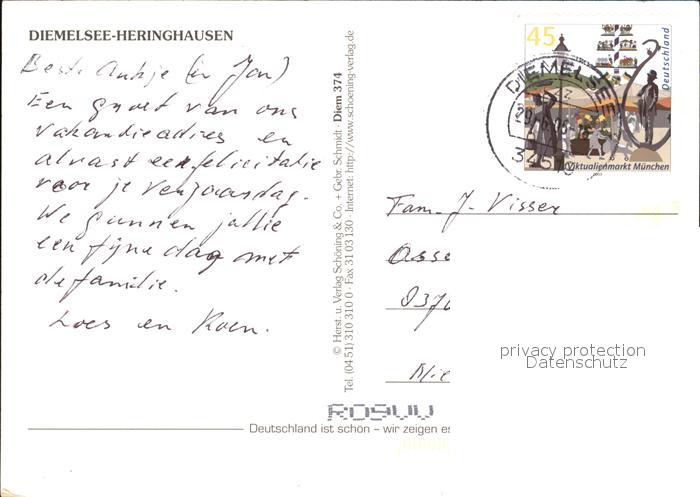 DIEMELSEE-HERINGHAUSEN
Beste Ankje (en Jan)
Een groet van ons
vakantieadres en
alvast een felicitatie
voor je verjaardag.
We gunnen jullie
een fijne dag met
de familie.
Loes en Koen.
© Herst. u. Verlag Schöning & Co. + Gebr. Schmidt · Diem 374
Tel. (04 51) 310 310 0 · Fax 31 03 130 · Internet: http://www.schoening-verlag.de
45
Deutschland
Viktualienmarkt München
DIEMELSEE
Fam. J. Visser
Asse
937
Nie
privacy protection
Datenschutz
R09UU
Deutschland ist schön – wir zeigen es